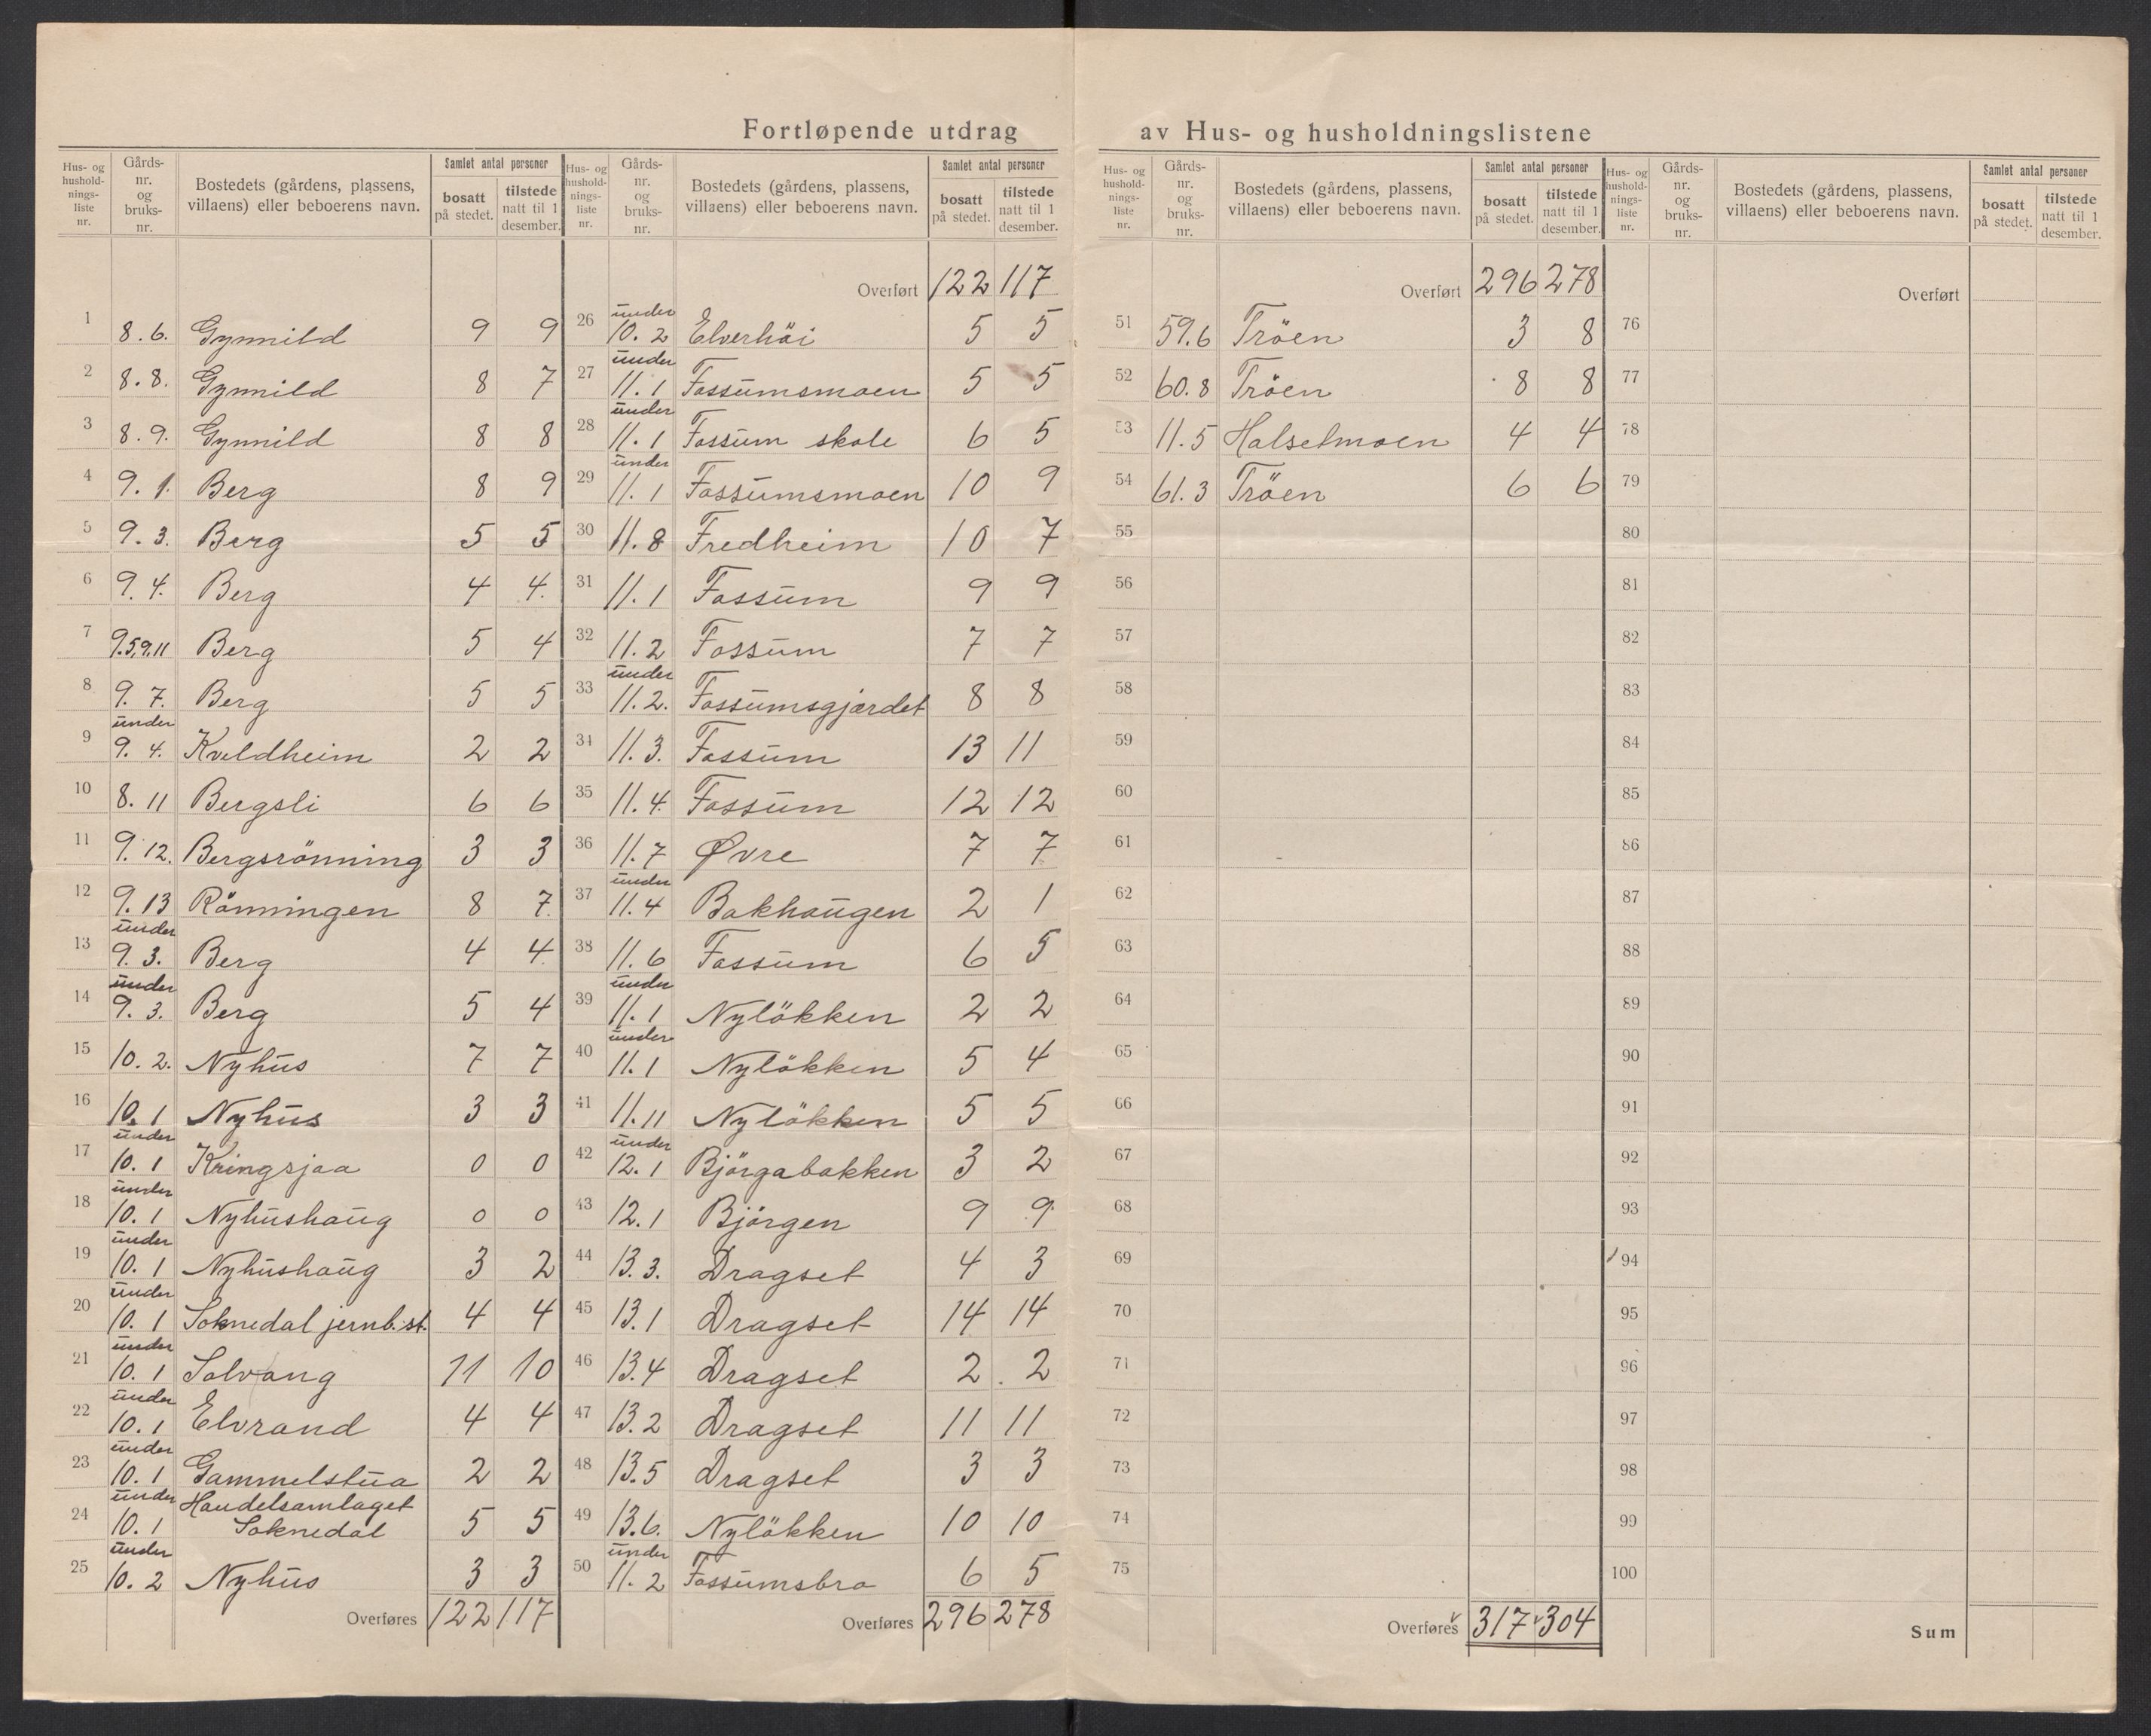 Fortløpende utdrag av Hus- og husholdningslistene
Hus- og husholdningsliste nr. | Gårds-nr. og bruks-nr. | Bostedets (gårdens, plassens, villaens) eller beboerens navn. | Samlet antal personer | bosatt på stedet. | tilstede natt til 1 desember.
1 8.6. Gynnild 9 9
2 8.8. Gynnild 8 7
3 8.9. Gynnild 8 8
4 9.1. Berg 8 9
5 9.3. Berg 5 5
6 9.4. Berg 4 4.
7 9.5,9.11 Berg 5 4
8 9.7. Berg 5 5
9 under 9.4. Kveldheim 2 2
10 8.11 Bergsli 6 6
11 9.12. Bergsrönning 3 3
12 9.13 Rönningen 8 7.
13 under 9.3. Berg 4 4
14 under 9.3. Berg 5 4
15 10.2. Nyhus 7 7
16 10.1 Nyhus 3 3
17 under 10.1 Kringsjaa 0 0
18 under 10.1 Nyhushaug 0 0
19 under 10.1 Nyhushaug 3 2
20 under 10.1 Soknedal jernb.st. 4 4
21 under 10.1 Solvang 11 10
22 under 10.1 Elvrand 4 4
23 under 10.1 Gammelstua 2 2
24 under 10.1 Handelsamlaget Soknedal 5 5
25 under 10.2 Nyhus 3 3
Overføres 122 117
Hus- og husholdningsliste nr. | Gårds-nr. og bruks-nr. | Bostedets (gårdens, plassens, villaens) eller beboerens navn. | Samlet antal personer | bosatt på stedet. | tilstede natt til 1 desember.
Overført 122 117
26 under 10.2 Elverhöi 5 5
27 under 11.1 Fossumsmoen 5 5
28 under 11.1 Fossum skole 6 5
29 under 11.1 Fossumsmoen 10 9
30 11.8 Fredheim 10 7
31 11.1 Fossum 9 9
32 11.2 Fossum 7 7
33 under 11.2. Fossumsgjærdet 8 8
34 11.3. Fossum 13 11
35 11.4. Fossum 12 12
36 11.7 Øvre 7 7
37 under 11.4 Bakhaugen 2 1
38 11.6 Fossum 6 5
39 under 11.1 Nylökken 2 2
40 under 11.1 Nylökken 5 4
41 11.11 Nylökken 5 5
42 under 12.1 Björgabakken 3 2
43 12.1 Björgen 9 9
44 13.3. Dragset 4 3
45 13.1 Dragset 14 14
46 13.4 Dragset 2 2
47 13.2 Dragset 11 11
48 13.5 Dragset 3 3
49 13.6. Nylökken 10 10
50 under 11.2 Fossumsbro 6 5
Overføres 296 278
Hus- og husholdningsliste nr. | Gårds-nr. og bruks-nr. | Bostedets (gårdens, plassens, villaens) eller beboerens navn. | Samlet antal personer | bosatt på stedet. | tilstede natt til 1 desember.
Overført 296 278
51 59.6 Tröen 3 8
52 60.8 Tröen 8 8
53 11.5 Halsetmoen 4 4
54 61.3 Tröen 6 6
55
56
57
58
59
60
61
62
63
64
65
66
67
68
69
70
71
72
73
74
75
Overføres 317 304
Hus- og husholdningsliste nr. | Gårds-nr. og bruks-nr. | Bostedets (gårdens, plassens, villaens) eller beboerens navn. | Samlet antal personer | bosatt på stedet. | tilstede natt til 1 desember.
Overført
76
77
78
79
80
81
82
83
84
85
86
87
88
89
90
91
92
93
94
95
96
97
98
99
100
Sum